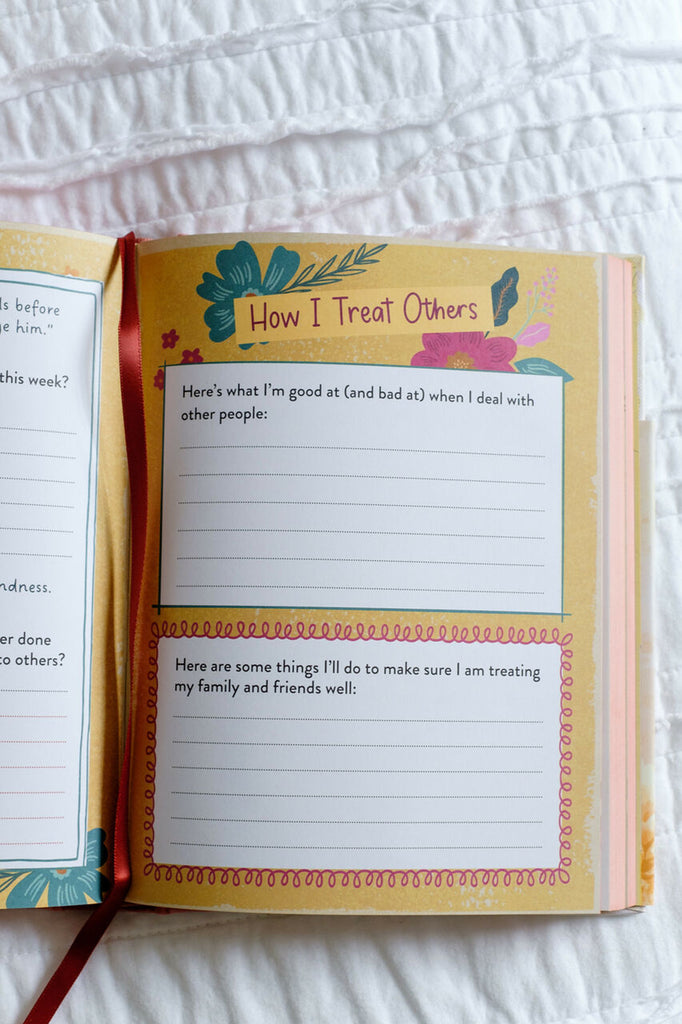 ls before
ge him."
this week?
ndness.
er done
to others?
How I Treat Others
Here's what I'm good at (and bad at) when I deal with
other people:
Here are some things I'll do to make sure I am treating
my family and friends well: